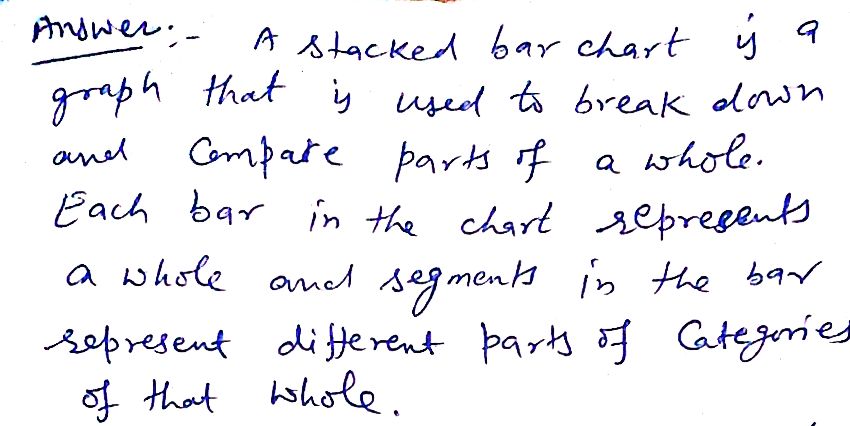 Answer:-  A stacked bar chart is a
graph that is used to break down
and Compare parts of a whole.
Each bar in the chart represents
a whole and segments in the bar
represent different parts of Categories
of that whole.